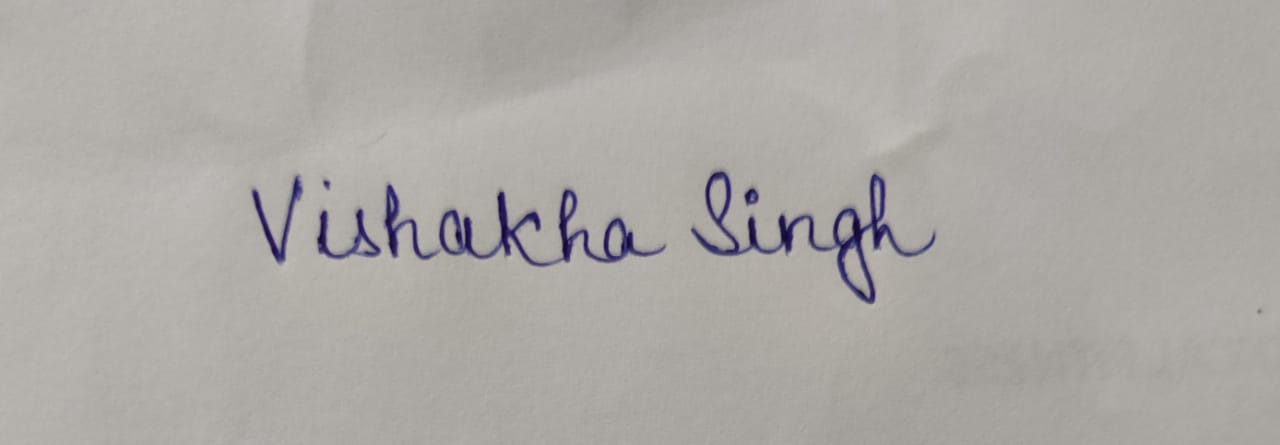 Vishakha Singh